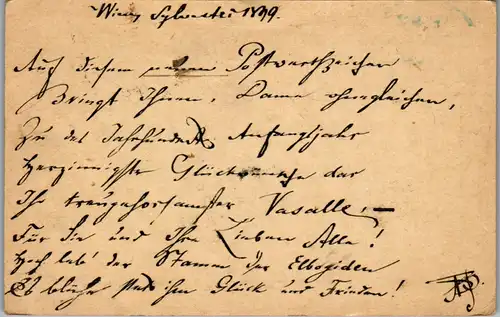 Wien, Sylvester 1899.
Auf diesem neuen Postwerthzeichen
Bringt Ihnen, Dame ohnegleichen,
Zu des Jahrhunderts Anfangsjahr
Herzinnigste Glückwünsche dar
Ihr treugehorsamster Vasalle, —
Für Sie und Ihre Lieben Alle!
Hoch leb' der Stamm der Elbogiden
Es blühe stets ihm Glück und Frieden!